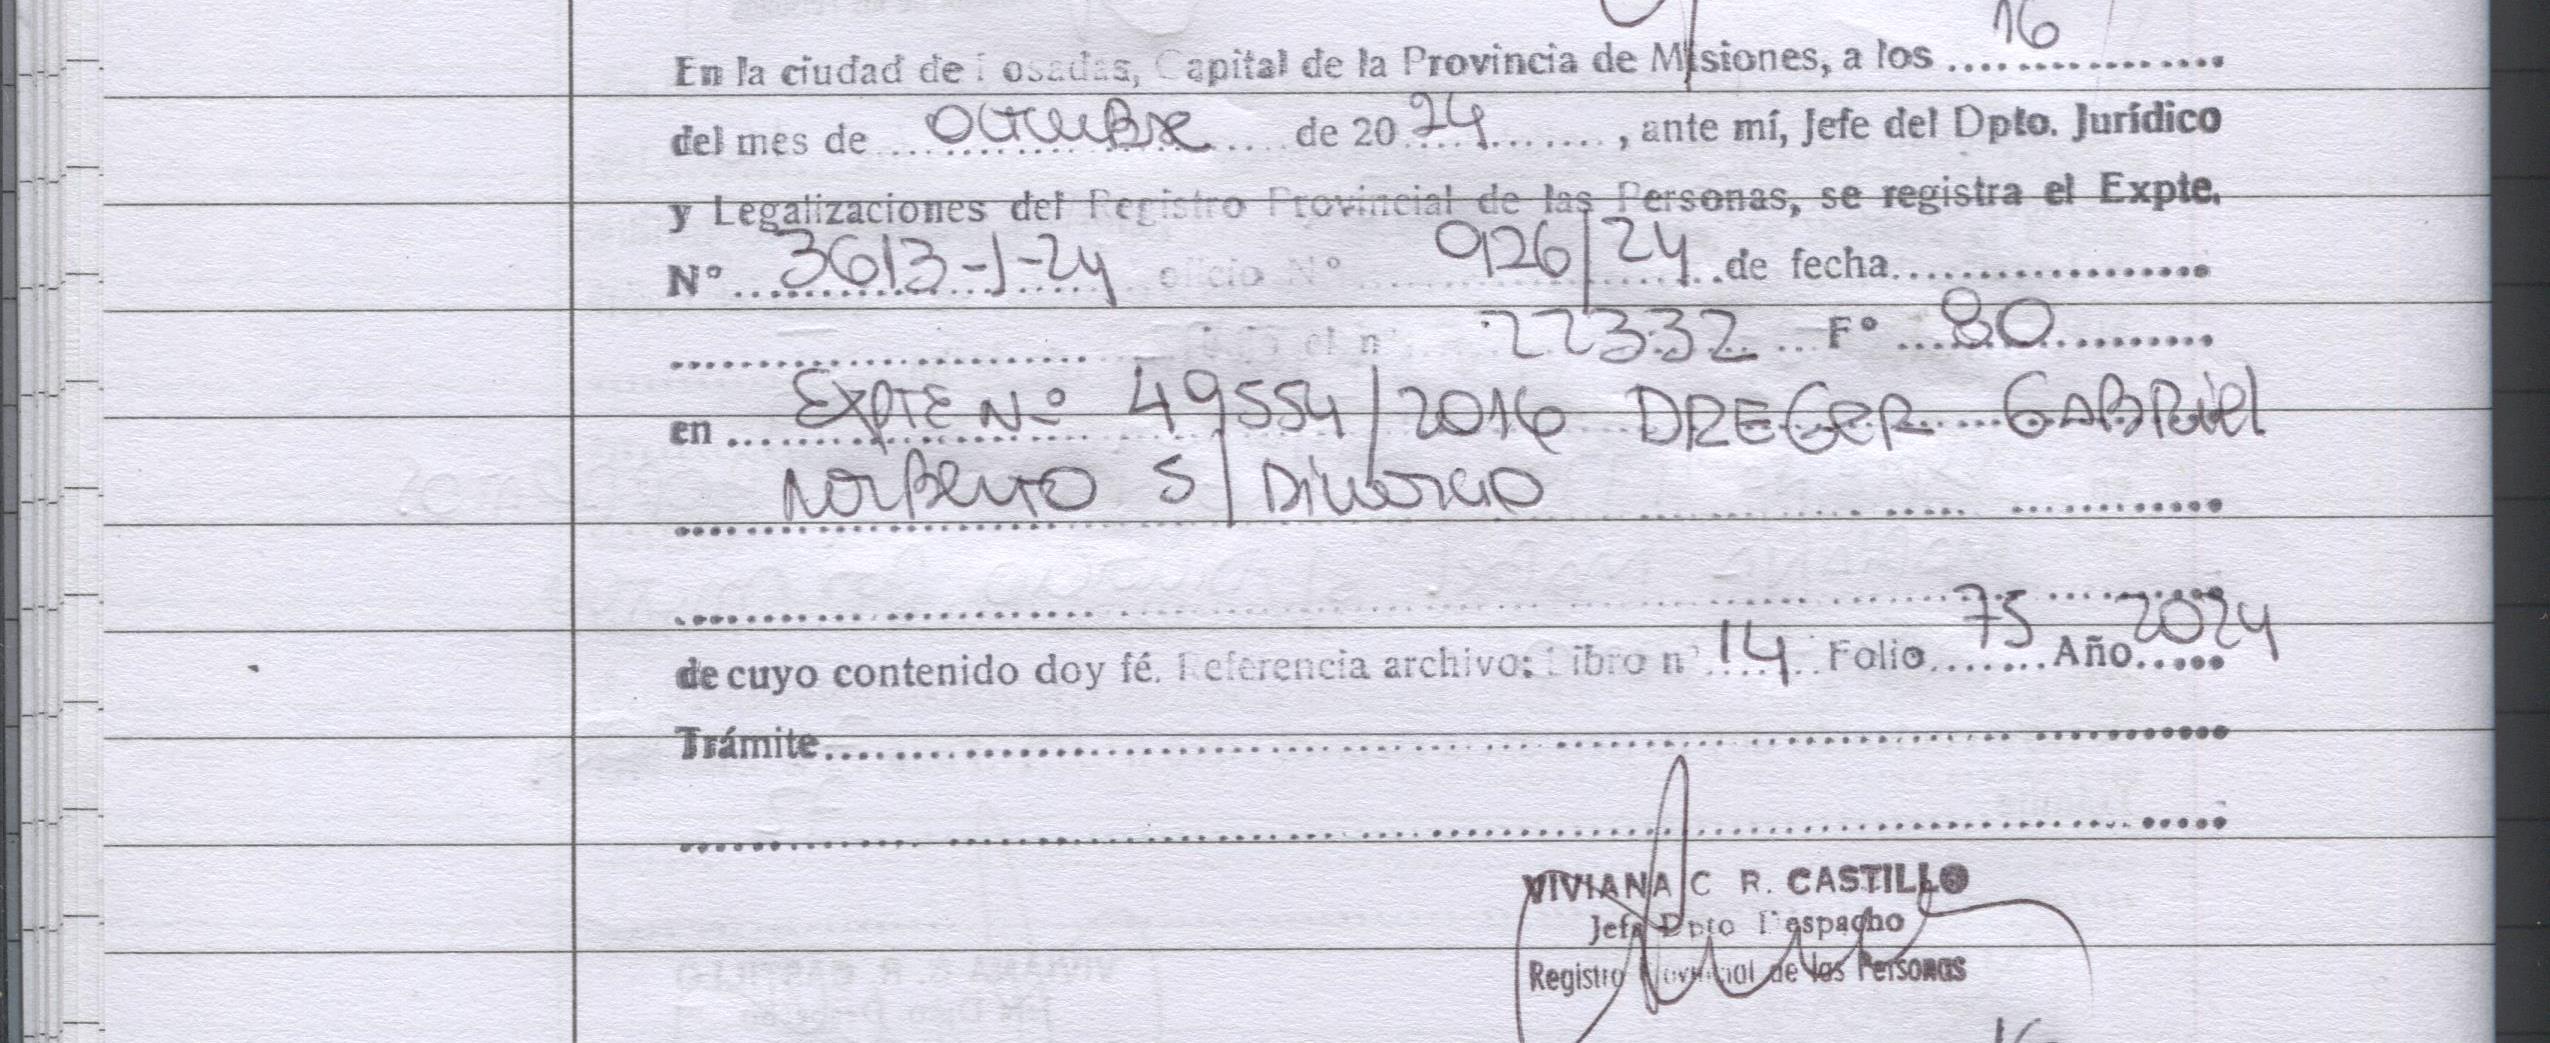 En la ciudad de Posadas, Capital de la Provincia de Misiones, a los 16
del mes de octubre de 2024, ante mí, Jefe del Dpto. Jurídico
y Legalizaciones del Registro Provincial de las Personas, se registra el Expte.
Nº 3613-J-24 oficio Nº 926/24 de fecha
22332 Fº 80
en Expte Nº 49554/2016 DREGER GABRiel
Norberto S/ Divorcio
de cuyo contenido doy fé. Referencia archivo: Libro nº 14 Folio 75 Año 2024
Trámite
VIVIANA C R. CASTILLO
Jefe Dpto Despacho
Registro Provincial de las Personas